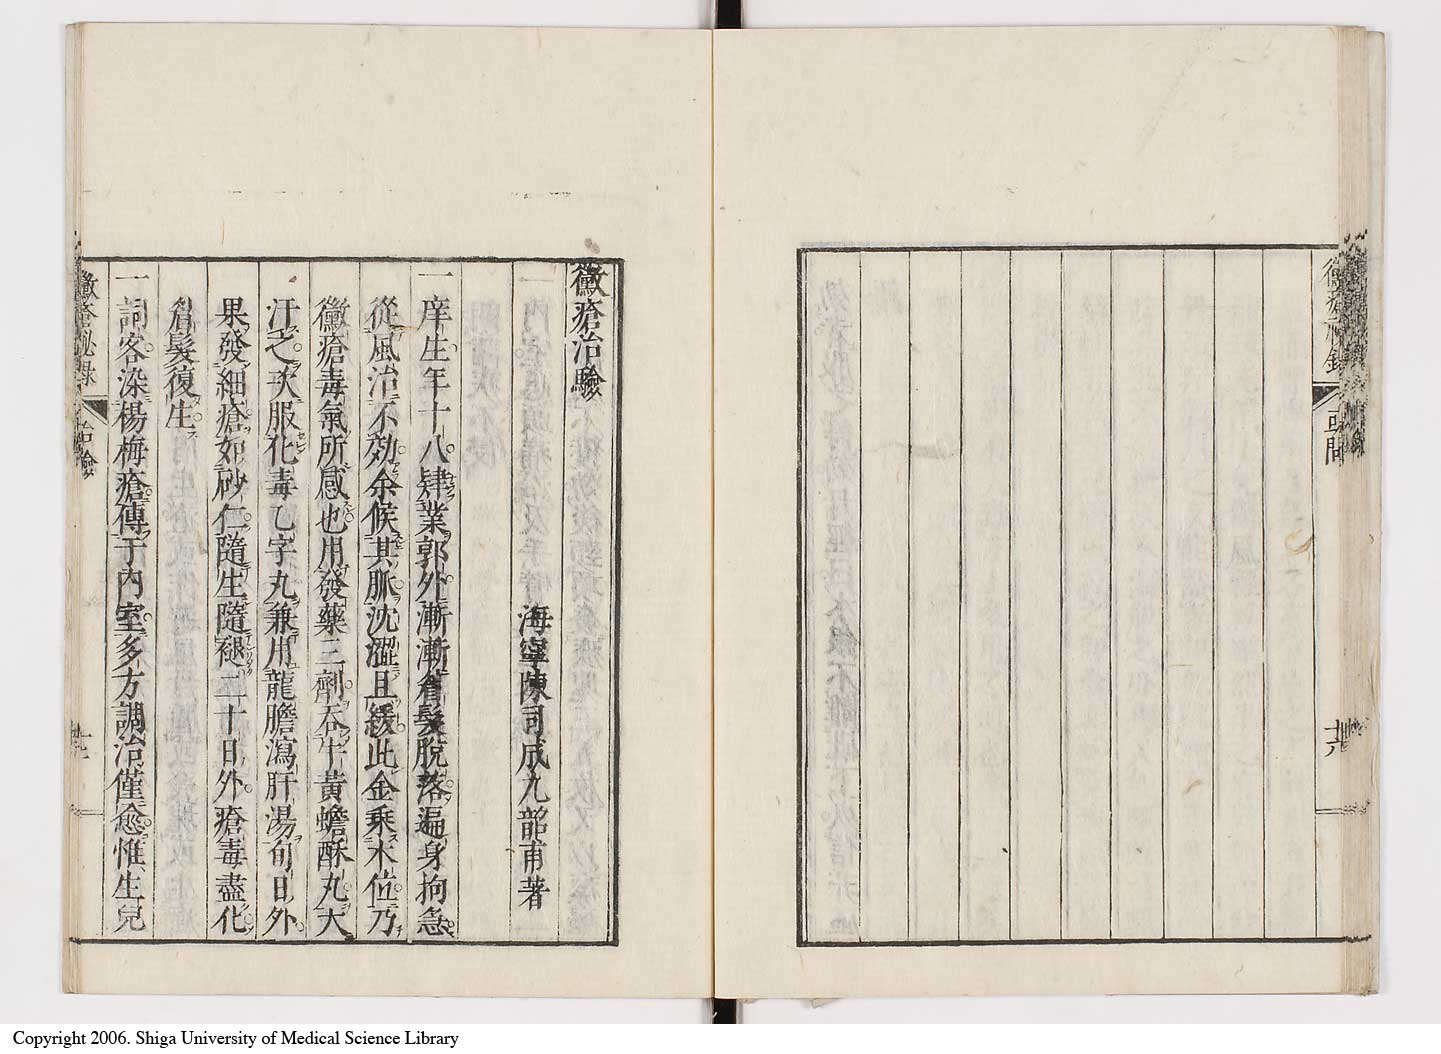 黴瘡治驗
海寧陳司成九韶甫著
一庠生年十八肄業郭外漸漸眉髮脫落遍身拘急
從風治不効余候其脈沈濇且緩此金乘木位乃
黴瘡毒氣所感也用發藥三劑吞牛黃蟾酥丸大
汗之次服化毒乙字丸兼用龍膽瀉肝湯旬日外
果發細瘡如砂仁隨生隨褪二十日外瘡毒盡化
眉髮復生
一詞客染楊梅瘡傳于內室多方調治僅愈惟生兒
黴瘡祕錄
治驗
或問
十六
Copyright 2006. Shiga University of Medical Science Library